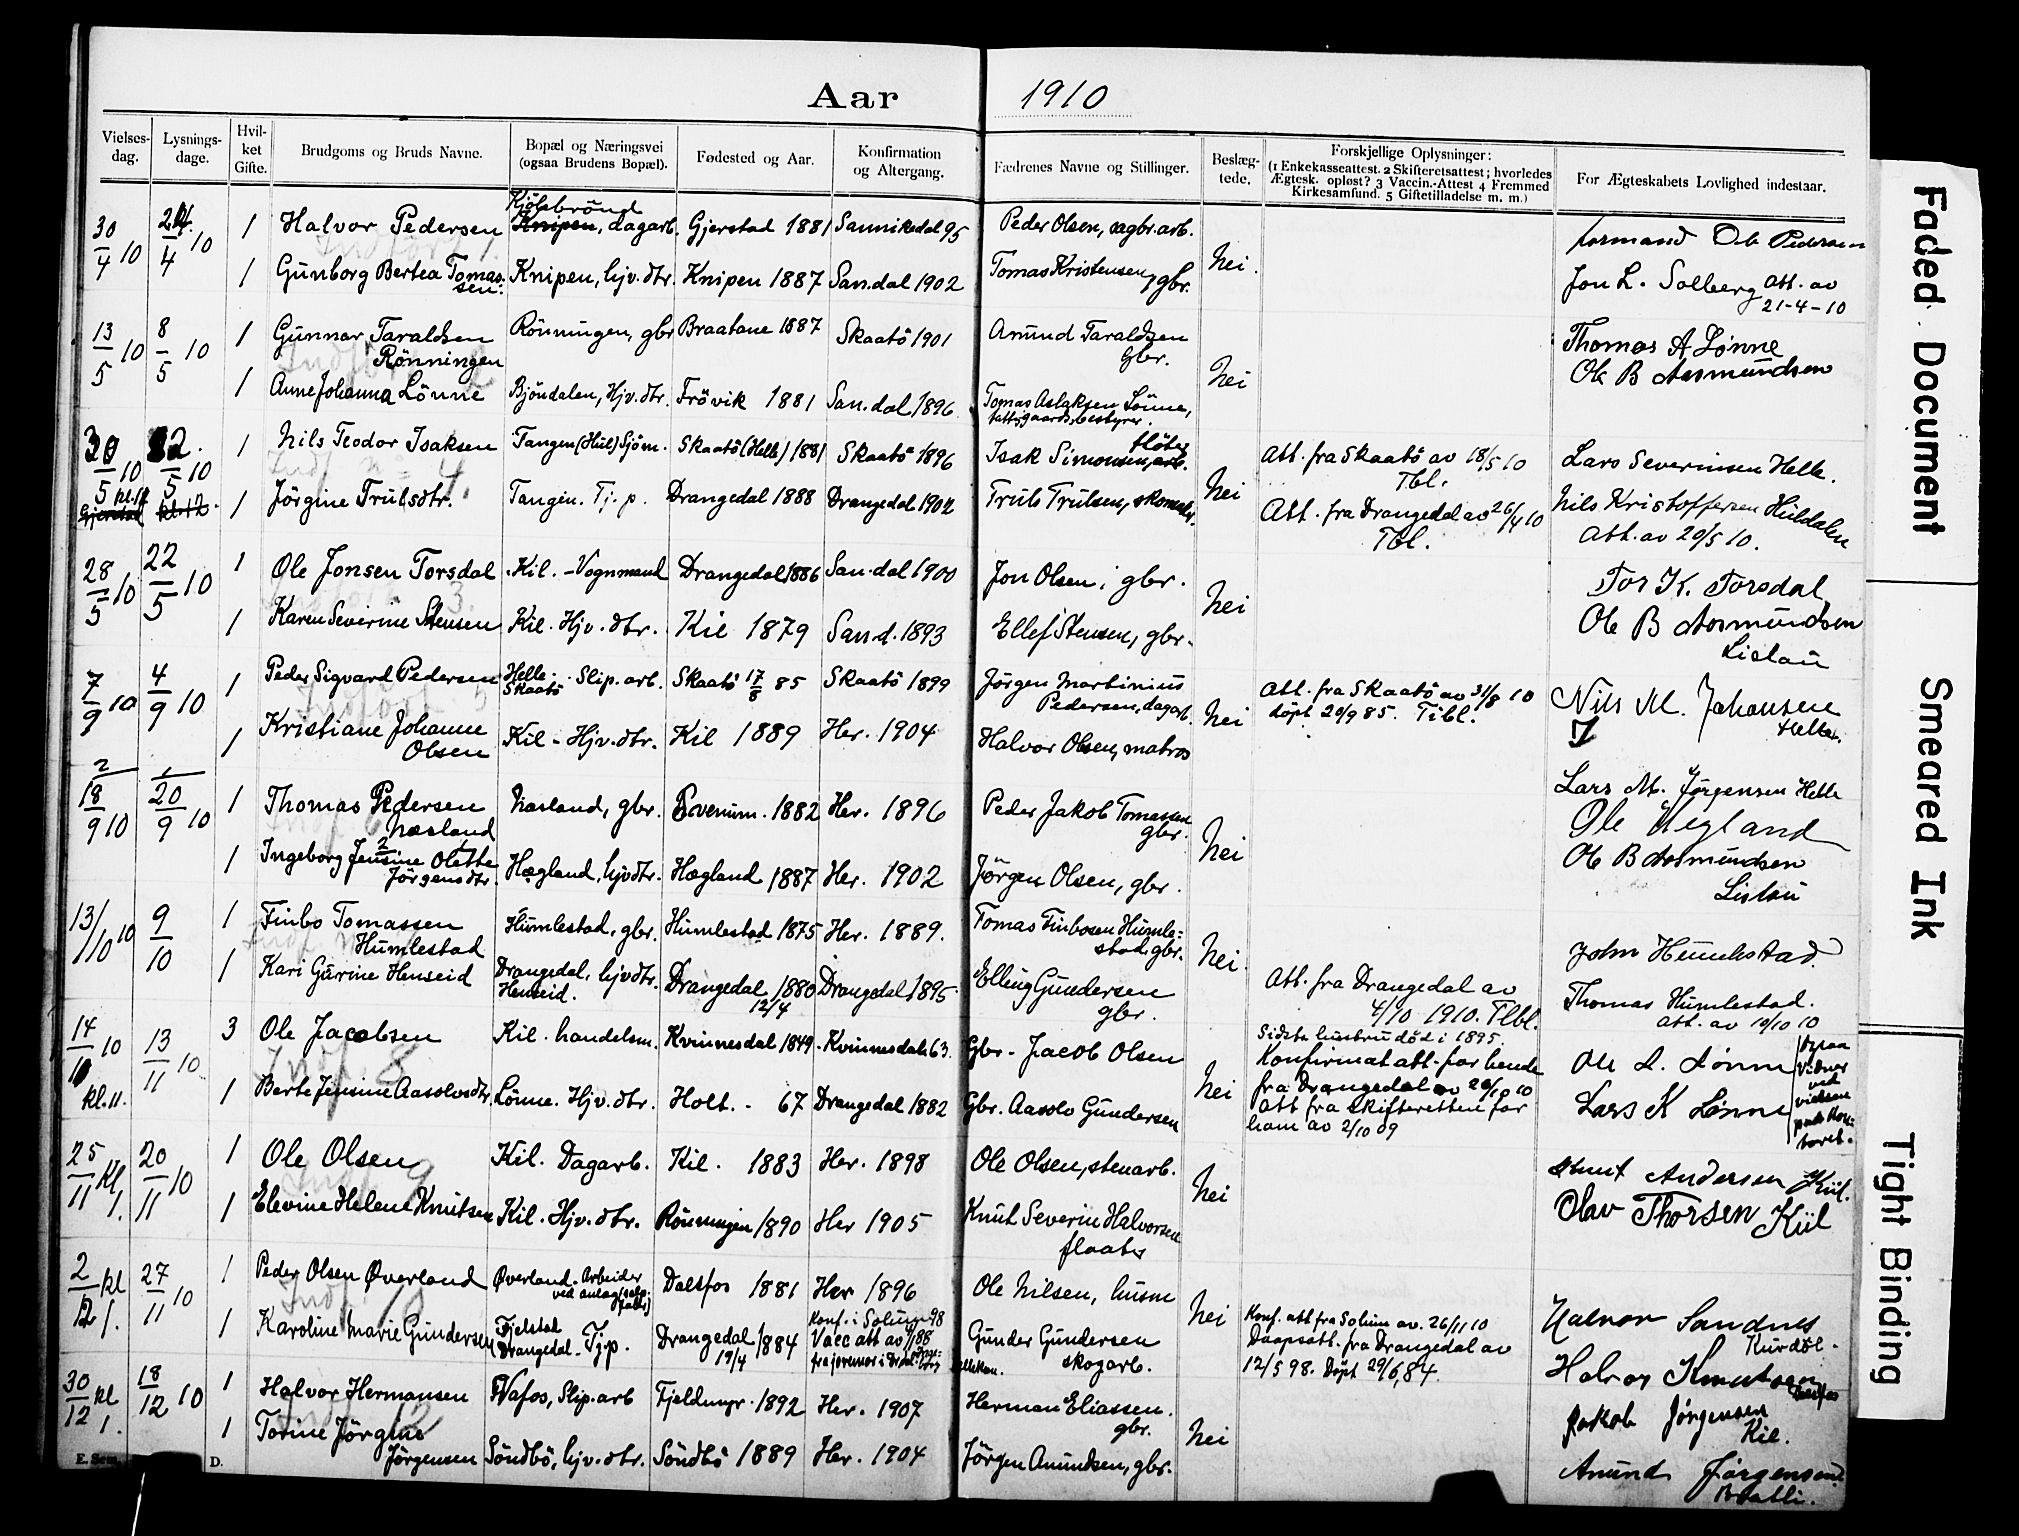 Aar 1910
Vielses-dag. Lysnings-dage. Hvil-ket Gifte. Brudgoms og Bruds Navne. Bopæl og Næringsvei (ogsaa Brudens Bopæl). Fødested og Aar. Konfirmation og Altergang. Fædrenes Navne og Stillinger. Beslæg-tede. Forskjellige Oplysninger: (1 Enkekasseattest. 2 Skifteretsattest; hvorledes Ægtesk. opløst? 3 Vaccin.-Attest 4 Fremmed Kirkesamfund. 5 Giftetilladelse m. m.) For Ægteskabets Lovlighed indestaar.
Kjölebrönd
30/4 10 24/4 10 1 Halvor Pedersen Knipen, dagarb. Gjerstad 1881 Sannikedal 95 Peder Olsen, sagbr. arb. formand Ole Pedersen
1 Gunborg Bertea Tomassen. Knipen, hjv. dtr. Knipen 1887 San.dal 1902 Tomas Kristensen, gbr. Nei. Jon L. Solberg att. av 21-4-10
13/5 10 8/5 10 1 Gunnar Taraldsen Rönningen Rönningen, gbr Braatane 1887 Skaatö 1901 Anund Taraldsen gbr. Thomas A Lønne
1 Anne Johanna Lönne Bjöndalen, Hjv. dtr. Frövik 1881 San.dal 1896 Tomas Aslaksen Lönne, fattiggaardsbestyrer. Nei Ole B Aasmundsen
30/5 10 22/5 10 1 Nils Teodor Isaksen Tangen (Hul) Sjöm. Skaatö (Helle) 1881 Skaatö 1896 Isak Simonsen, fløter arb. Att. fra Skaatö av 18/5 10 Tbl. Lars Severinsen Helle.
kl. 12 1 Jörgine Trulsdtr. Tangen. Tj. p. Drangedal 1888 Drangedal 1902 Truls Trulsen, skomaker. Nei Att. fra Drangedal av 26/4 10 Tbl. Nils Kristoffersen Huldalen Att. av 20/5 10.
28/5 10 22/5 10 1 Ole Jonsen Torsdal Kil. - Vognmand Drangedal 1886 San.dal 1900 Jon Olsen, gbr. Nei Tor K. Torsdal
1 Karen Severine Stensen Kil. Hjv. dtr. Kil 1879 San.d. 1893 Ellef Stensen, gbr. Ole B Aasmundsen Listau
7/9 10 4/9 10 1 Peder Sigvard Pedersen Helle Skaatö. Slip. arb. Skaatö 17/8 85 Skaatö 1899 Jörgen Martinius Pedersen, dagarb. Nei Att. fra Skaatö av 31/8 10 döpt 20/9 85. Tibl. Nils M. Johansen Helle.
1 Kristiane Johanne Olsen Kil - Hjv. dtr. Kil 1889 Her. 1904 Halvor Olsen, matros
18/9 10 20/9 10 1 Thomas Pedersen Næsland Næsland, gbr. 1882 Her. 1896 Peder Jakob Tomassen gbr. Nei Lars M. Jørgensen Helle
Ole Hegland
1 Ingeborg Jensine Olette Jörgensdtr. Hægland, hjvdtr. Hægland 1887 Her. 1902 Jörgen Olsen, gbr. Ole B Aasmundsen Listau
13/10 10 9/10 1 Finbo Tomassen Humlestad Humlestad, gbr. Humlestad 1875 Her. 1889. Tomas Finbosen Humlestad, gbr. Nei. John Humlestad
1 Kari Gurine Henseid Drangedal, hjvdtr. Henseid. Drangedal 1880 12/4 Drangedal 1895 Elling Gundersen gbr. Att. fra Drangedal av 4/10 1910. Tlbl. Thomas Humlestad. att. av 10/10 10
14/11 10 13/11 10 3 Ole Jacobsen Kil. handelsm. Kvinnesdal 1849. Kvinnesdal 63. Gbr. Jacob Olsen Nei Sidste hustru död i 1895. Konfirmat att. for hende fra Drangedal av 20/10 10 Ole L. Lønne
kl. 11. 1 Berte Jensine Aasolvsdtr. Lönne. Hjv. dtr. Holt. - 67 Drangedal 1882 Gbr. Aasolv Gundersen Att fra skifteretten for ham av 2/10 09 Lars K Lønne
Ogsaa vidner ved vielsen paa kontoret.
25/11 kl. 1. 20/11 10 1 Ole Olsen Kil. Dagarb. Kil. 1883 Her. 1898 Ole Olsen, stenarb. Nei Knut Andersen Kiil.
1 Elevine Helene Knutsen Kil. Hjv. dtr. Rönningen 1890 Her 1905 Knut Severin Halvorsen fløater Olav Thorsen Kiil
2/12 kl 1. 27/11 10 1 Peder Olsen Øverland Øverland. Arbeider ved anlæg Dalsfos 1881 Her 1896 Ole Nilsen, husm Nei Halvor Sandnes Kurdøl.
1 Karoline Marie Gundersen Fjelstad Drangedal - Tj.p. Drangedal 19/4 1884 Konf. i Solum 98 Vacc att av Gunder Gundersen skogarb. Konf. att fra Solum av. 26/11 10 Daapsatt. fra Drangedal av 12/5 98. Döpt 29/6, 84. Halvor Knutsen
30/12 kl 1. 18/12 10 1 Halvor Hermansen Vafos, Slip. arb Fjeldmyr. 1892 Her. 1907 Herman Eliassen. gbr. Nei Jakob Jørgensen Kil.
1 Torine Jörgine Jörgensen Söndbö, hjv. dtr. Söndbö 1889 Her. 1904 Jörgen Anundsen, gbr. Anund Jørgensen Bratli.
E. Sem. D.
Faded Document
Smeared Ink
Tight Binding